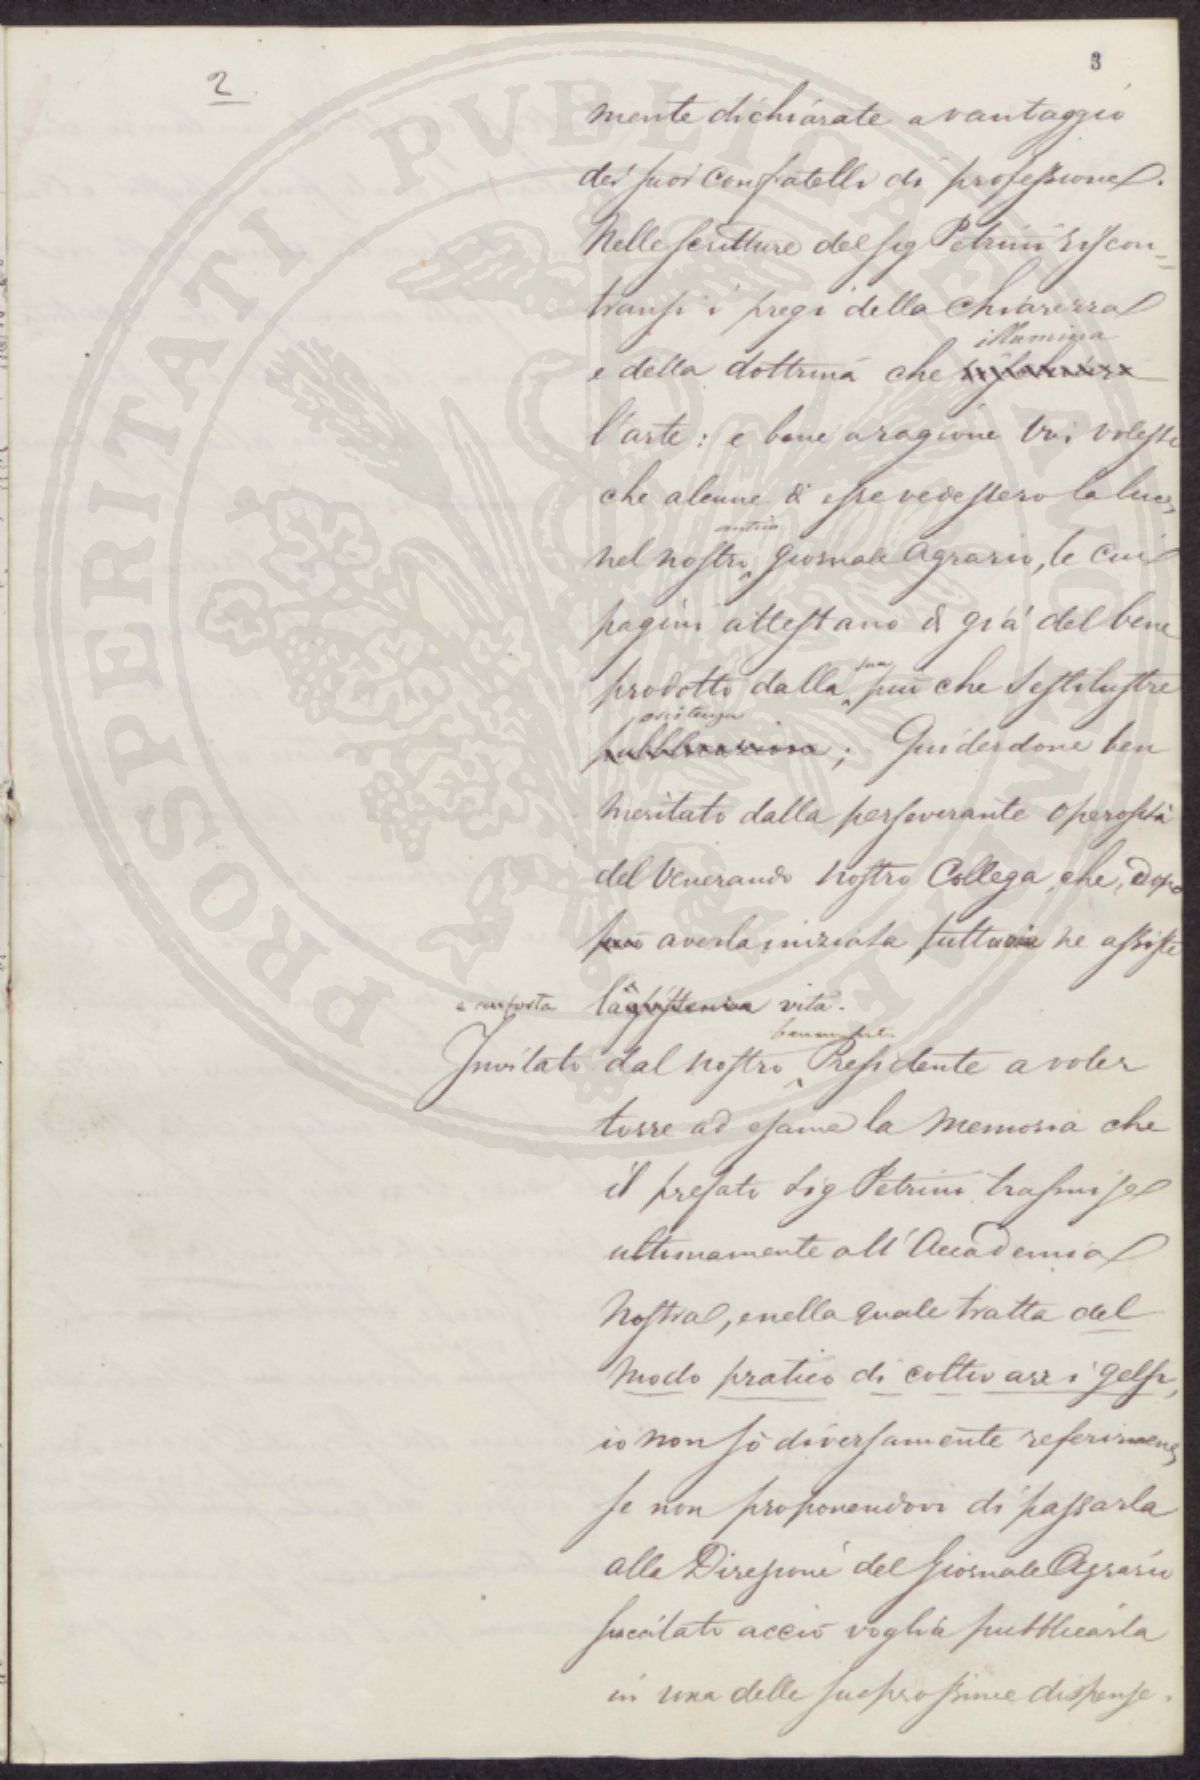 3
2.
mente dichiarate a vantaggio
dei suoi confratelli di professione.
Nelle scritture del sig Petrini riscon=
transi i pregi della chiarezza
illumina
e della dottrina che
l'arte: e bene a ragione Voi voleste
che alcune di esse vedessero la luce,
antico
nel nostro giornale Agrario, le cui
pagini attestano di già del bene
sua
prodotto dalla più che sestilustre
esistenza
pubblicazione; Guiderdone ben
meritato dalla perseverante operosità
del Venerando nostro Collega, che, dopo
averla iniziata tuttavia ne assiste
e conforta la esistenza vita.
benemerito
Invitato dal nostro Presidente a voler
torre ad esame la Memoria che
il prefato Sig Petrini trasmise
ultimamente all'Accademia
Nostra, e nella quale tratta del
modo pratico di coltivare i gelsi,
io non sò diversamente referirvene,
se non proponendovi di passarla
alla Direzione del Giornale Agrario
succitato acciò voglia pubblicarla
in una delle sue prossime dispense.
PROSPERITATI PVBLICAE AVGENDAE